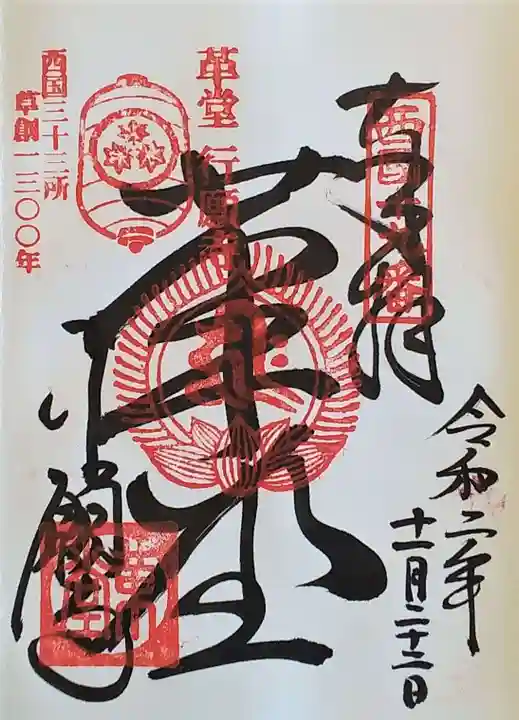 奉拝
西国十九番
令和二年
十二月二十二日
革堂
革堂 行願寺
行願寺
西国三十三所
草創一三〇〇年